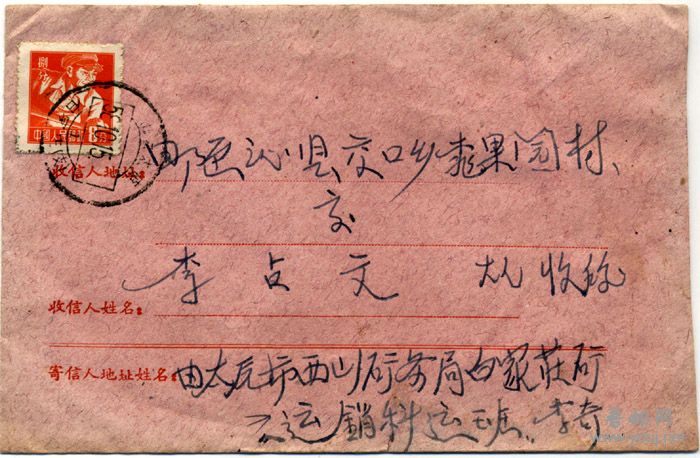 捌分
中国人民邮政 8分
收信人地址：
邮邑沁县交口乡桃果园村、
交
李占文 大人收
收信人姓名：
寄信人地址姓名：
由太原市西山矿务局白家庄矿
运銷科运班 李奇